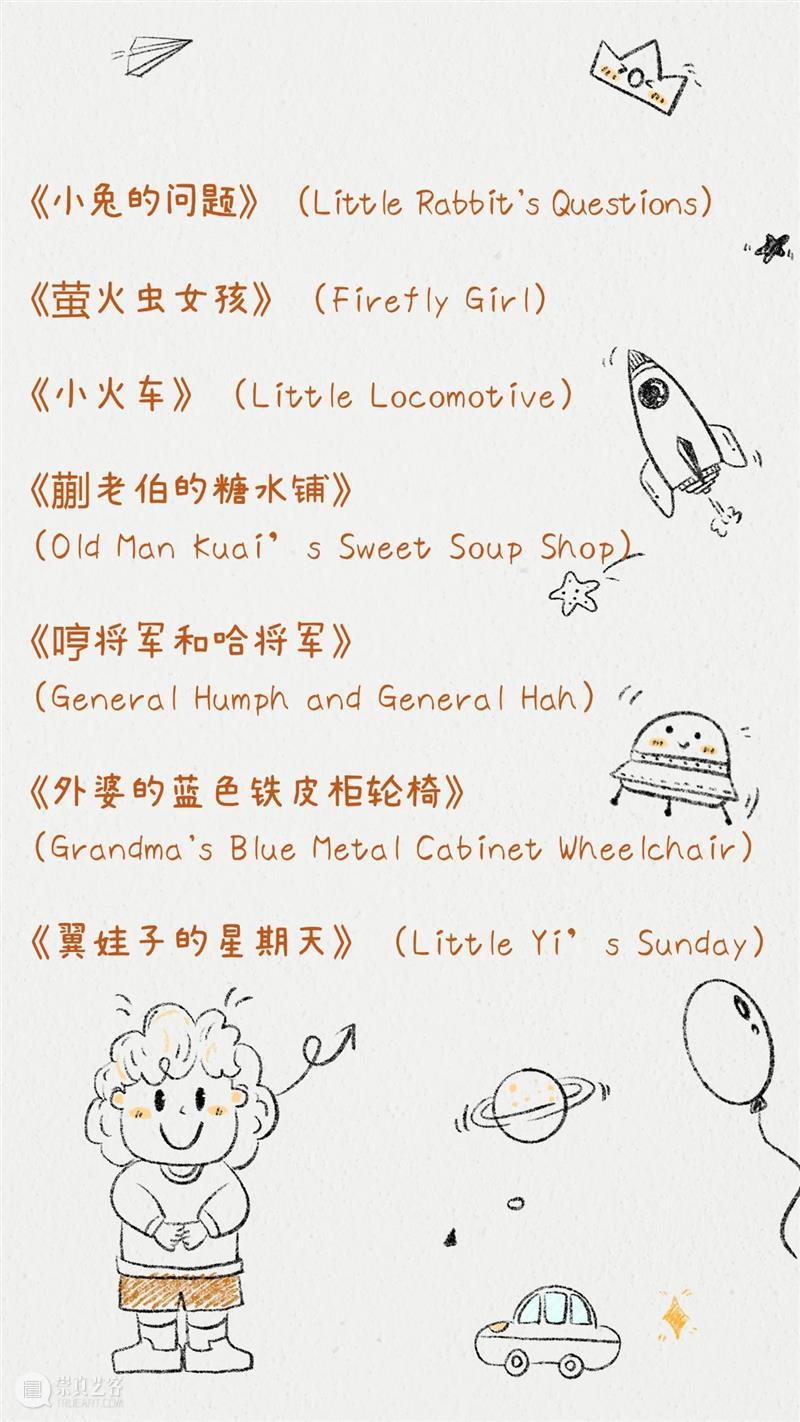 《小兔的问题》（Little Rabbit's Questions）
《萤火虫女孩》（Firefly Girl）
《小火车》（Little Locomotive）
《蒯老伯的糖水铺》
（Old Man Kuai’s Sweet Soup Shop）
《哼将军和哈将军》
（General Humph and General Hah）
《外婆的蓝色铁皮柜轮椅》
（Grandma's Blue Metal Cabinet Wheelchair）
《翼娃子的星期天》（Little Yi’s Sunday）
崇真艺客
TRUEART.COM